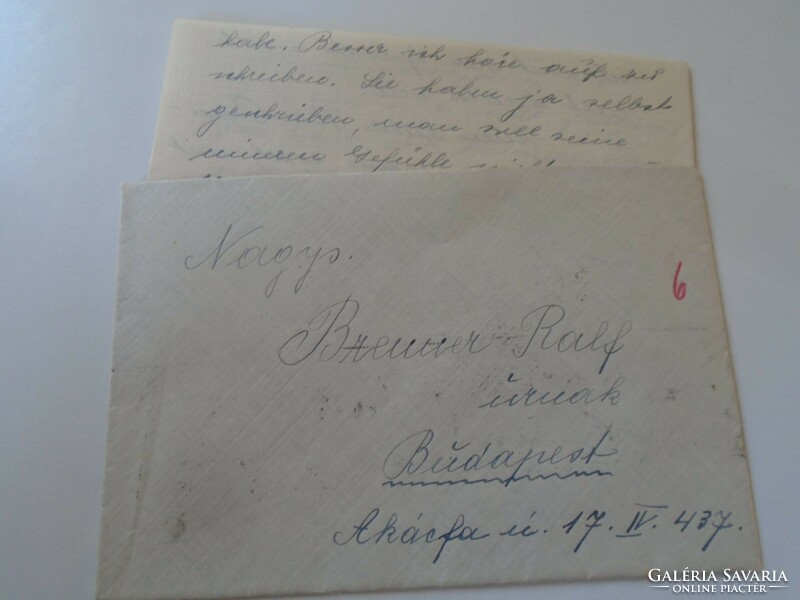 habe. Besser ich höre auf zu
schreiben. Sie haben ja selbst
geschrieben, man soll seine
inneren Gefühle
Nagys.
6
Brenner Ralf
úrnak
Budapest
Akácfa ú. 17. IV. 437.
GALÉRIA SAVARIA
ONLINE PIACTÉR